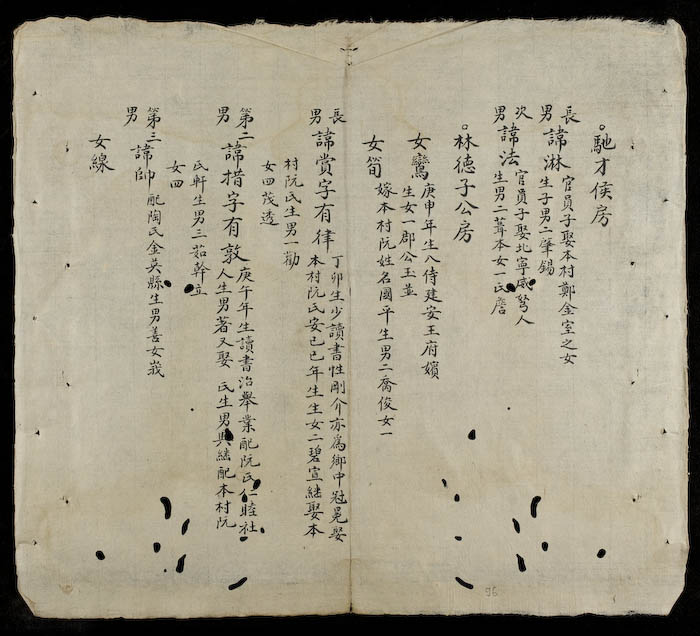 馳才侯房
長男 諱淋 官員子娶本村鄭金室之女
生子男二肇錫
次男 諱法 官員子娶北寧威弩人
生男二葺本女一氏詹
林德子公房
女鸞 庚申年生入侍建安王府嬪
生女一郡公玉並
女筍 嫁本村阮姓名國平生男二喬俊女一
長男 諱賞字有律 丁卯生少讀書性剛介亦為鄉中冠冕娶
本村阮氏安己巳年生生女二碧宣継娶本
村阮氏生男一勸
女四茂透
第二男 諱措字有敦 庚午年生讀書治舉業配阮氏仁睦社
人生男著又娶 氏生男典継配本村阮
氏軒生男三茹幹立
女四
第三男 諱帥 配陶氏金英縣生男善女峩
女線
96